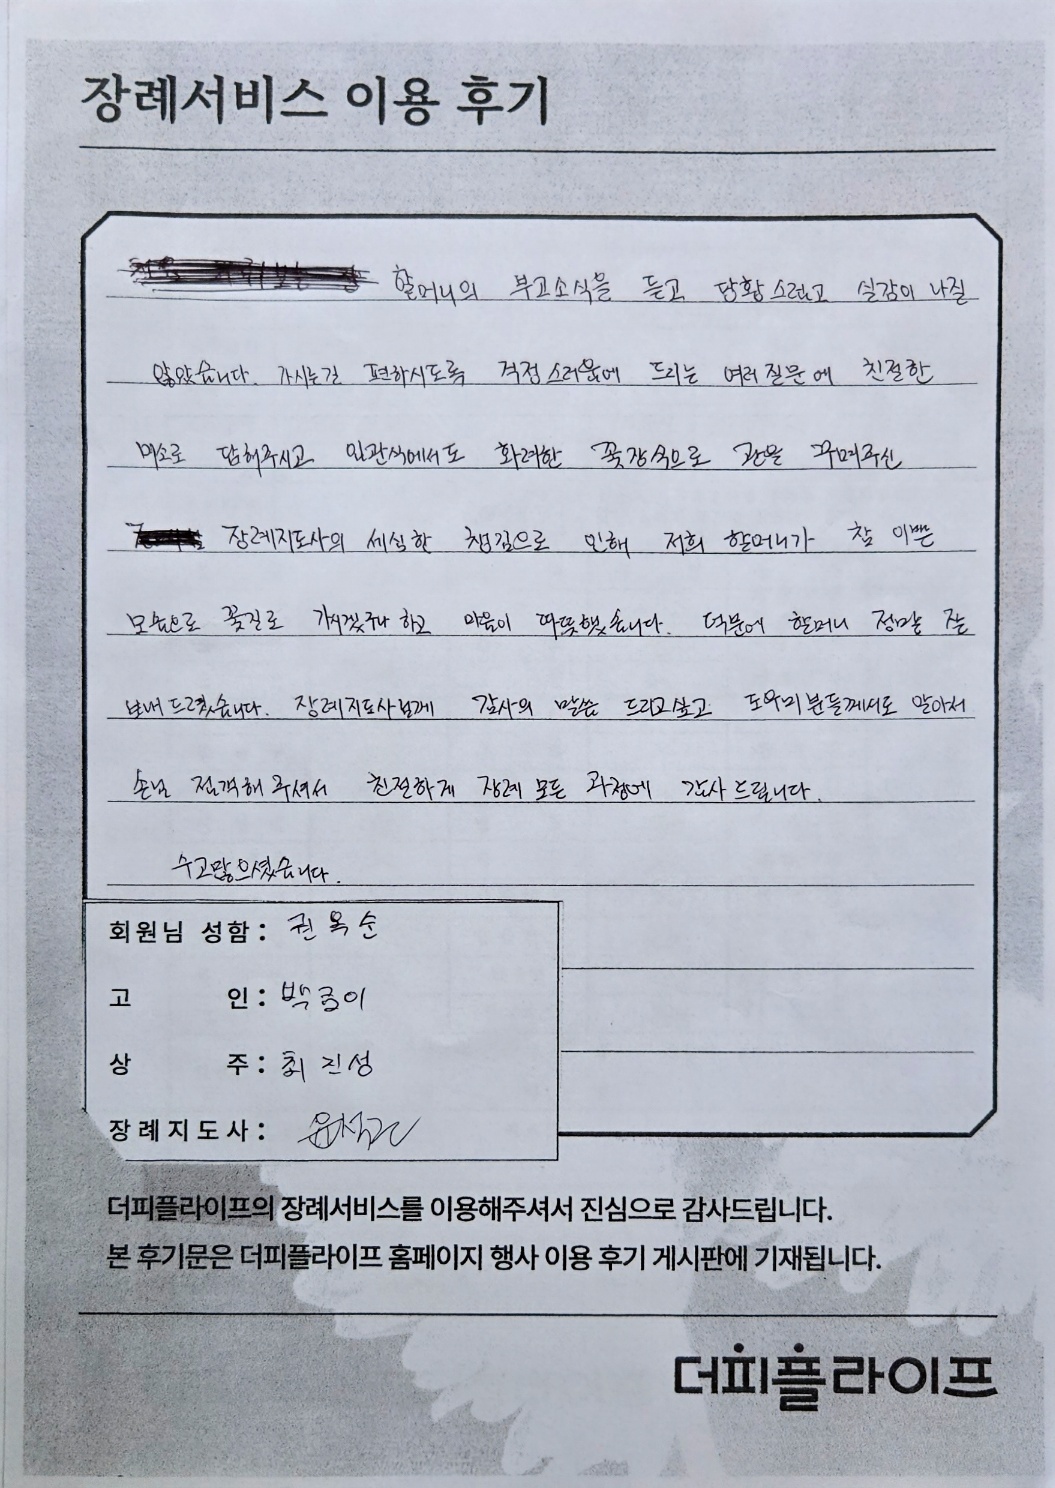 장례서비스 이용 후기
할머니의 부고소식을 듣고 당황스럽고 실감이 나질
않았습니다. 가시는길 편하시도록 걱정스러움에 드리는 여러질문에 친절한
미소로 답해주시고 입관식에서도 화려한 꽃장식으로 관을 꾸며주신
장례지도사의 세심한 챙김으로 인해 저희 할머니가 참 이쁜
모습으로 꽃길로 가시겠구나 하고 마음이 따뜻했습니다. 덕분에 할머니 정말 잘
보내드렸습니다. 장례지도사님께 감사의 말씀 드리고싶고 도우미분들께서도 알아서
손님 접객해주셔서 친절하게 장례 모든 과정에 감사드립니다.
수고많으셨습니다.
회원님 성함 : 권옥순
고 인 : 박금이
상 주 : 최진성
장례지도사 :
더피플라이프의 장례서비스를 이용해주셔서 진심으로 감사드립니다.
본 후기문은 더피플라이프 홈페이지 행사 이용 후기 게시판에 기재됩니다.
더피플라이프